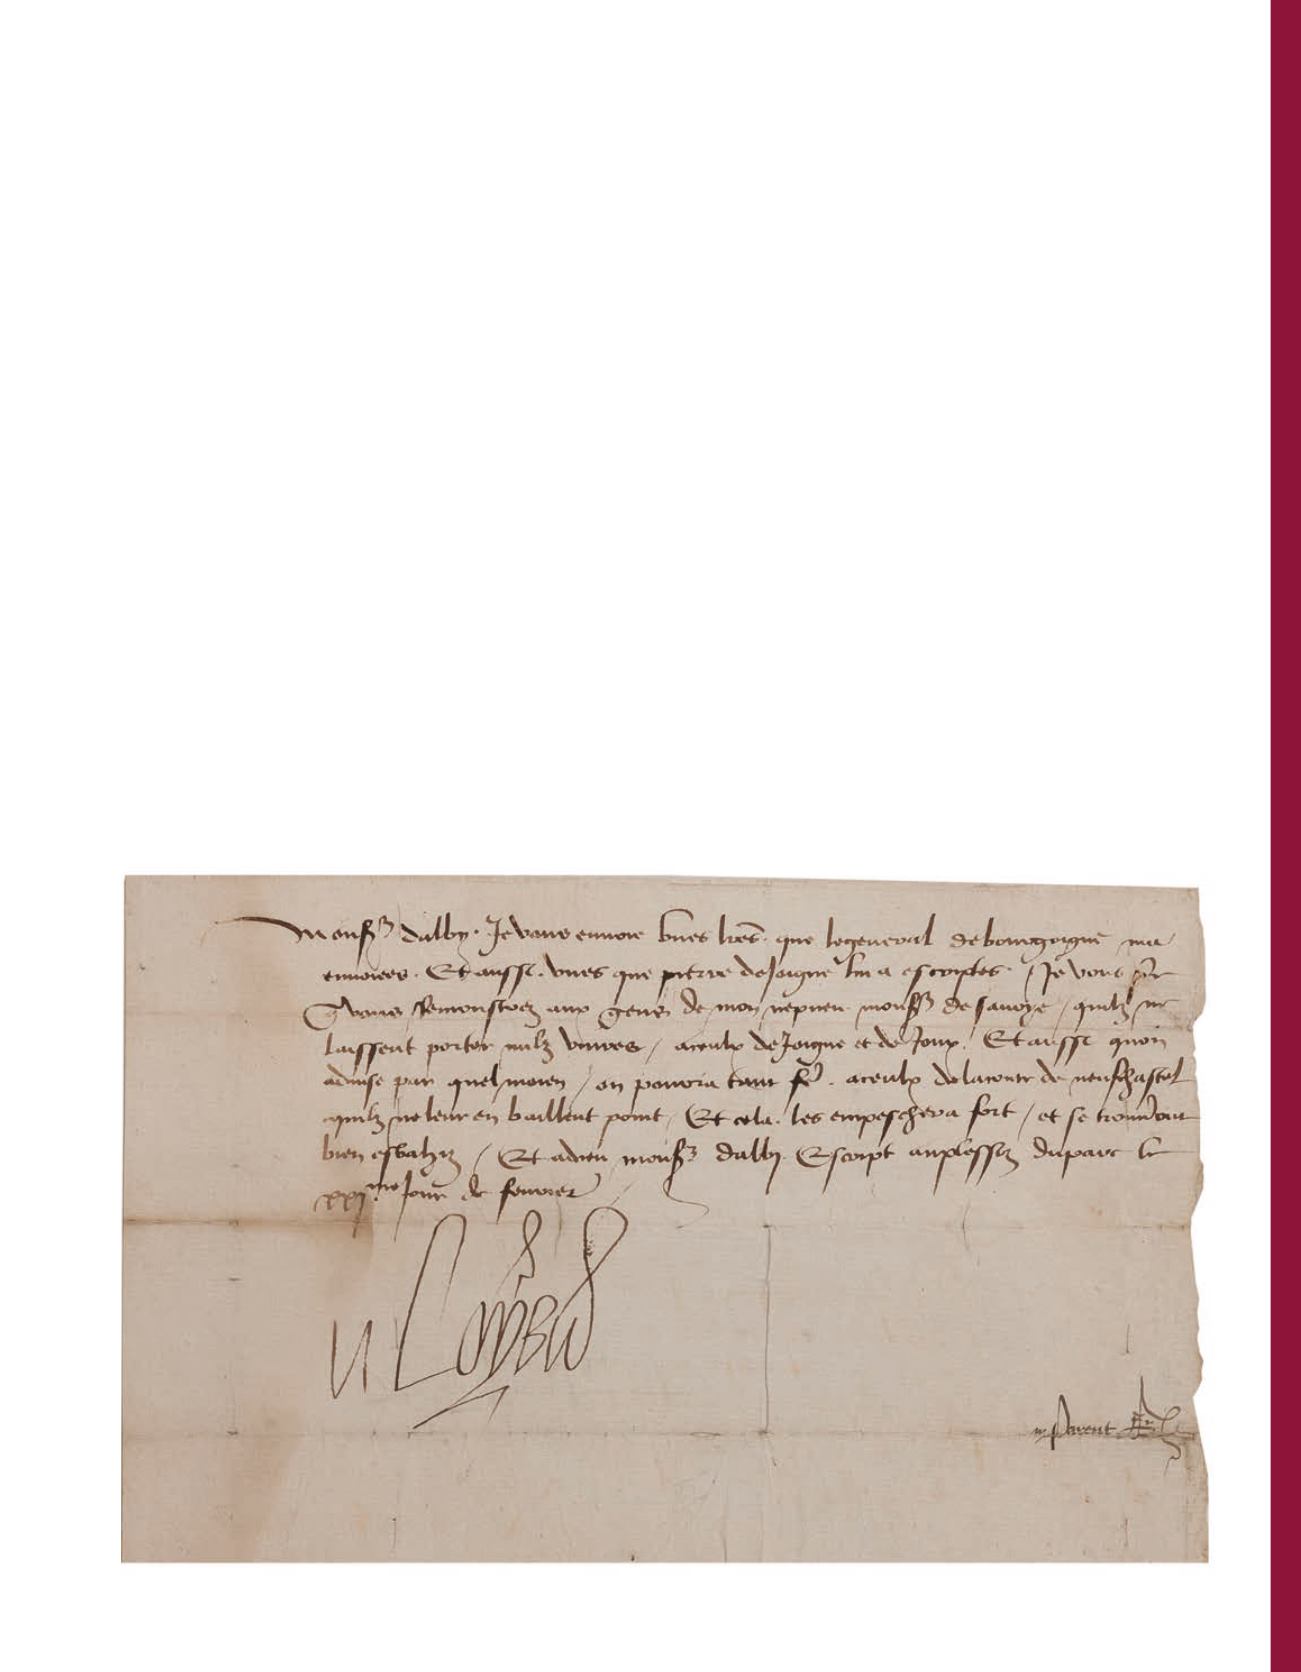 Monsr dalby. Je vous envoie unes lrēs. que le general de bourgoigne ma
envoiees. Et aussi. unes que pierre de Joigne lui a escriptes. / Je vous pr̄ie
vous Remonstrez aux gens de mon nepveu monsr de savoye / quilz ne
laissent porter nulz vivres / a ceulx de Joigne et de Joux. Et aussi quon
advise par quel moien / on pourra tant fē. a ceulx de la conte de neufchastel
quilz ne leur en baillent point / Et cela. les empeschera fort / et se trouveront
bien esbahiz / Et adieu monsr dalby. Escript au plessiz du parc le
xxj me Jour de fevrier
Loys
Parent